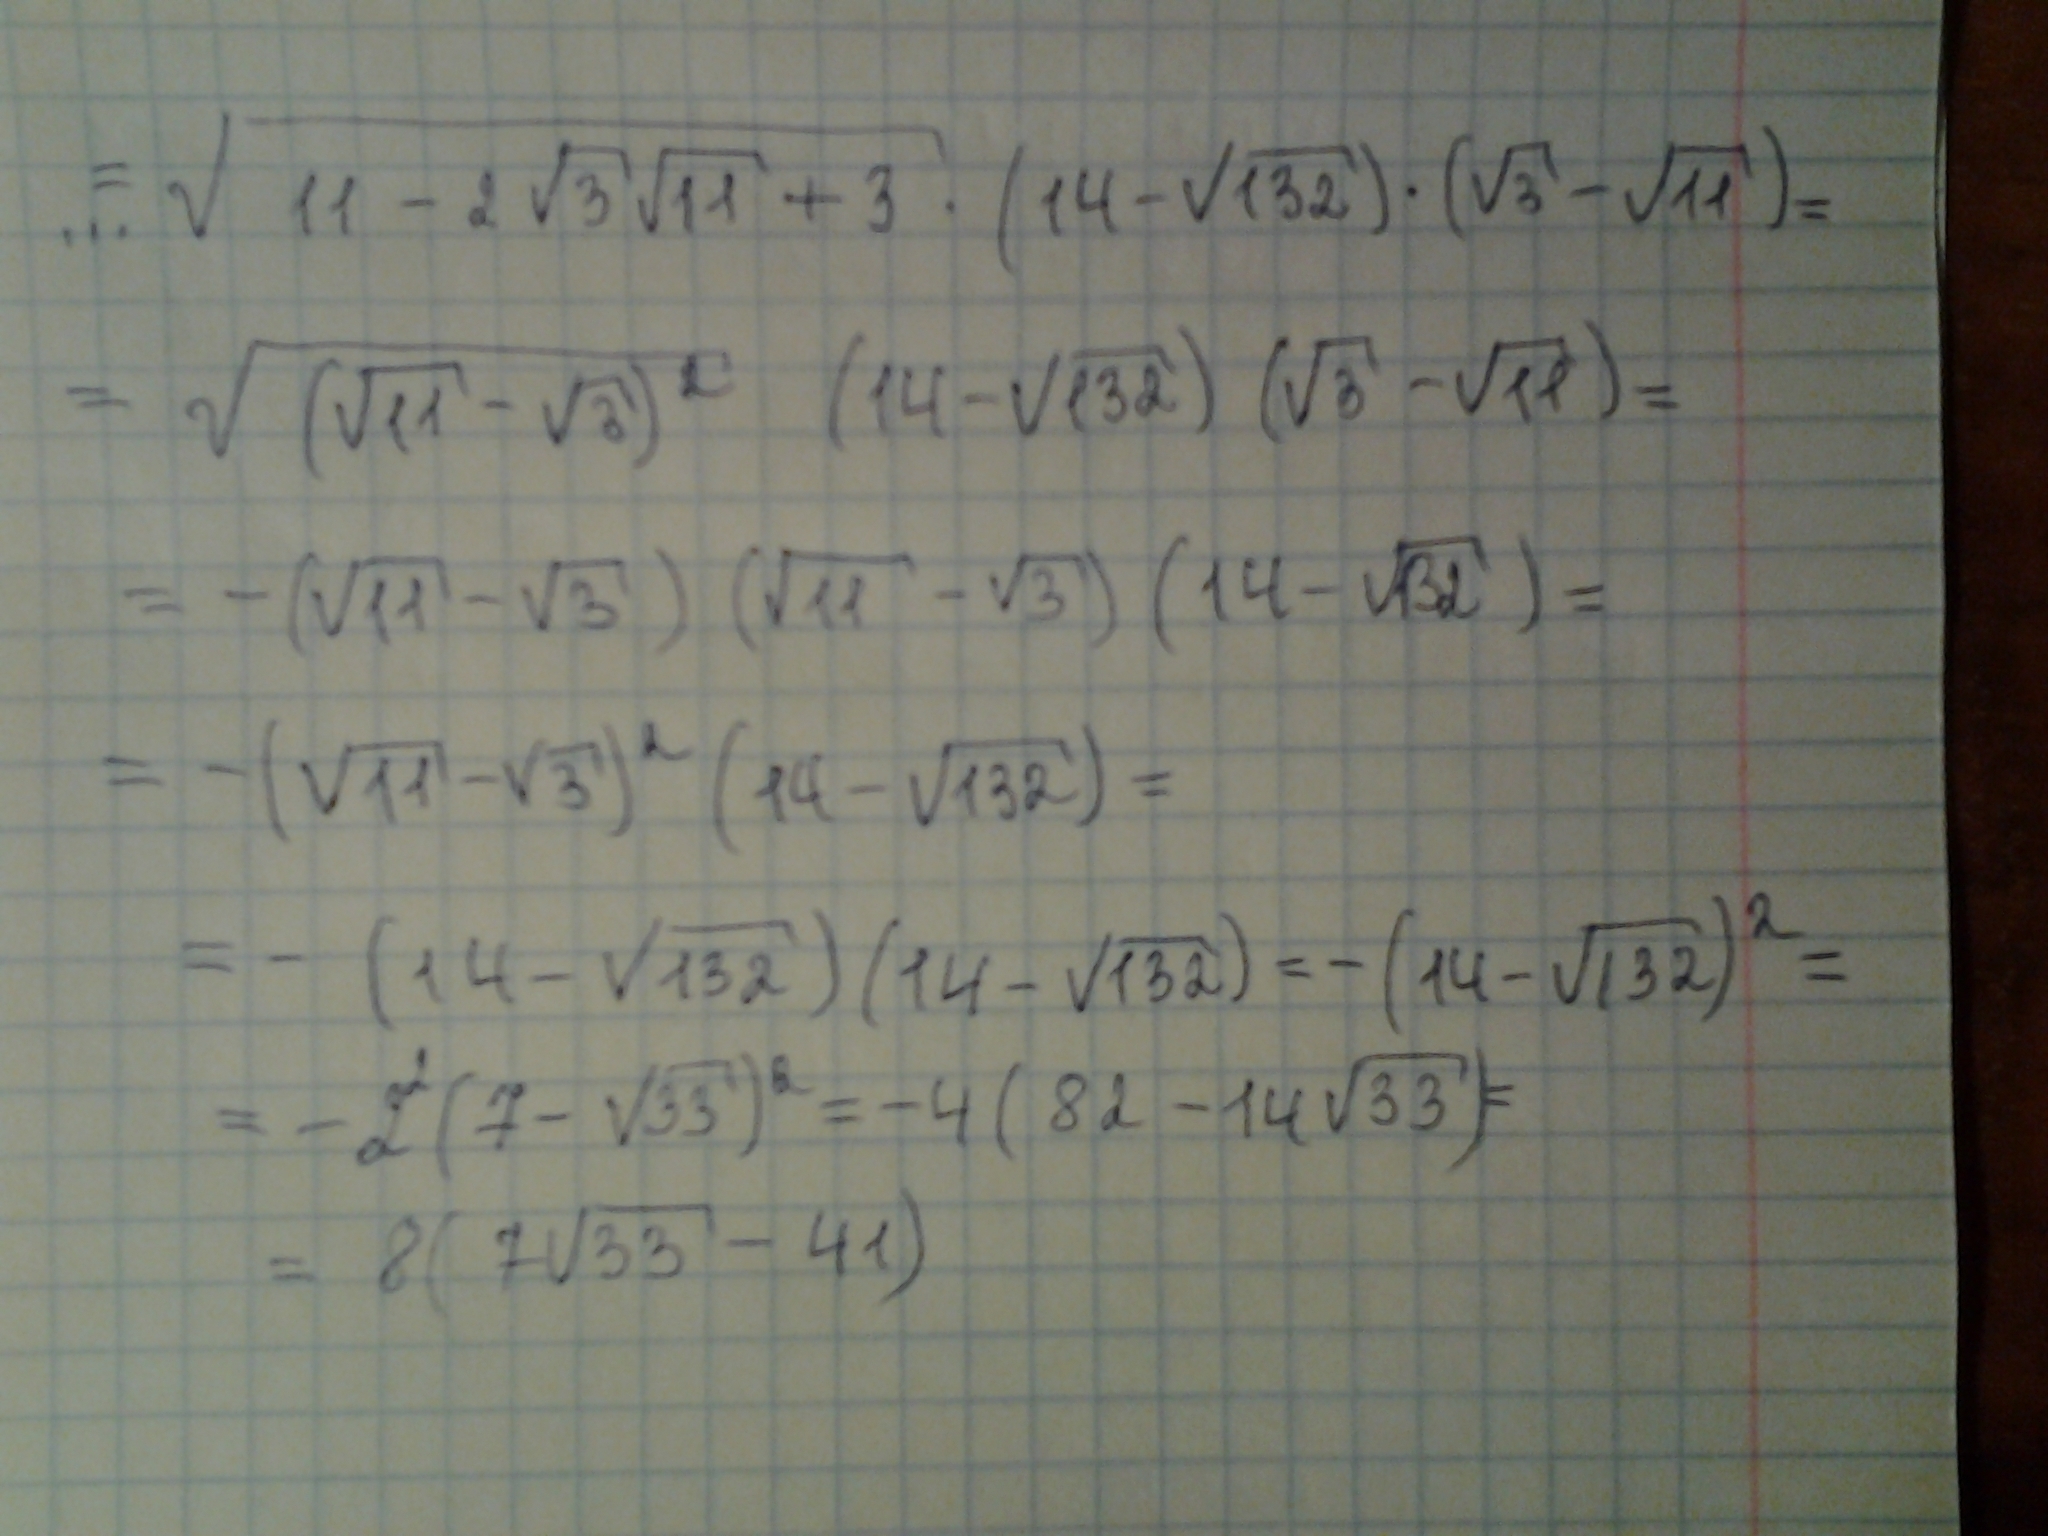 ...= √(11 - 2√3√11 + 3) · (14 - √132) · (√3 - √11) =
= √((√11 - √3)²) (14 - √132) (√3 - √11) =
= -(√11 - √3) (√11 - √3) (14 - √132) =
= -(√11 - √3)² (14 - √132) =
= - (14 - √132) (14 - √132) = -(14 - √132)² =
= -2²(7 - √33)² = -4(82 - 14√33) =
= 8(7√33 - 41)